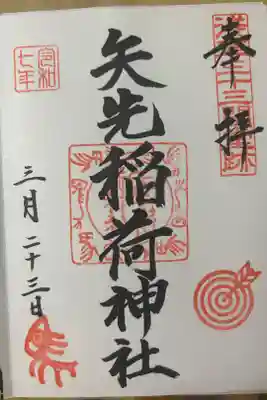 奉拝
矢先稲荷神社
令和七年
三月二十三日